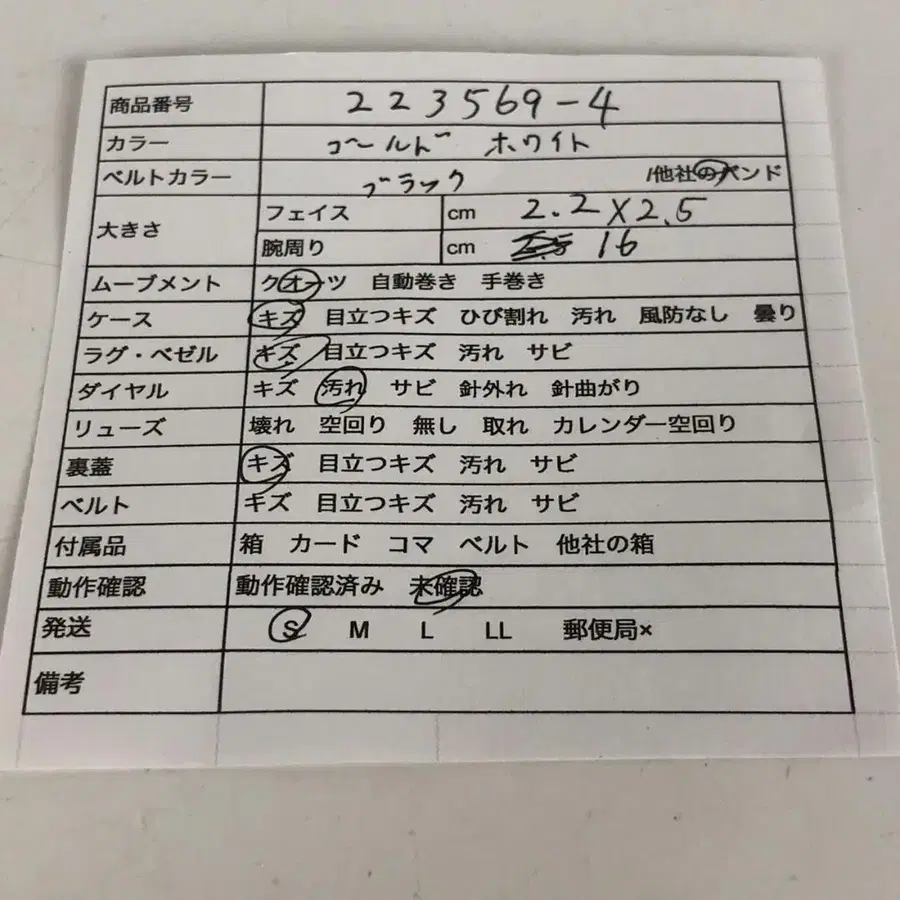 商品番号 223569-4
カラー ゴールド ホワイト
ベルトカラー ブラック /他社のバンド
大きさ フェイス cm 2.2×2.5
腕周り cm 16
ムーブメント クオーツ 自動巻き 手巻き
ケース キズ 目立つキズ ひび割れ 汚れ 風防なし 曇り
ラグ・ベゼル キズ 目立つキズ 汚れ サビ
ダイヤル キズ 汚れ サビ 針外れ 針曲がり
リューズ 壊れ 空回り 無し 取れ カレンダー空回り
裏蓋 キズ 目立つキズ 汚れ サビ
ベルト キズ 目立つキズ 汚れ サビ
付属品 箱 カード コマ ベルト 他社の箱
動作確認 動作確認済み 未確認
発送 S M L LL 郵便局×
備考